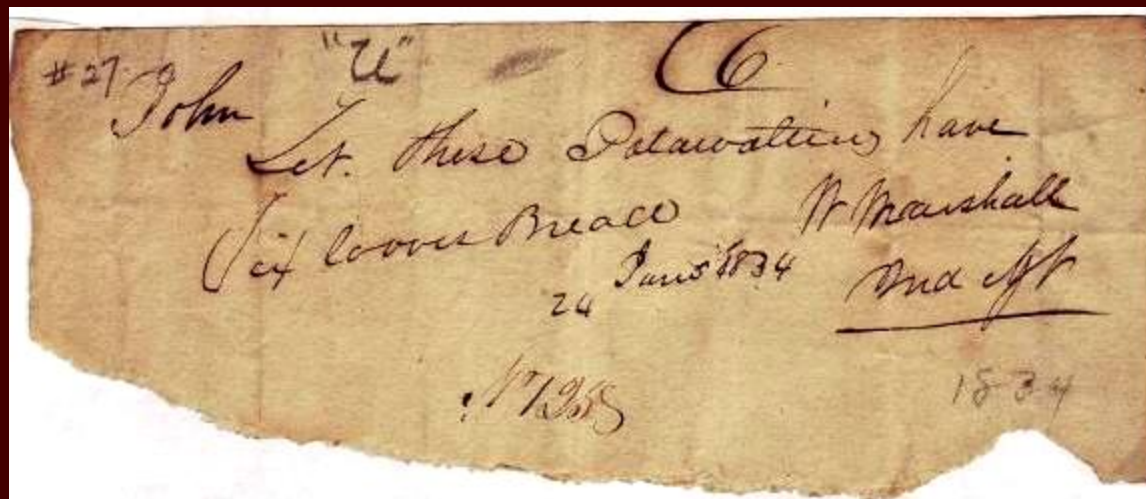 #27 "U" 6
John
Let. these Potawatties have
Six looves Bread W Marshall
24 Jan 1834 Ind Agt
1834